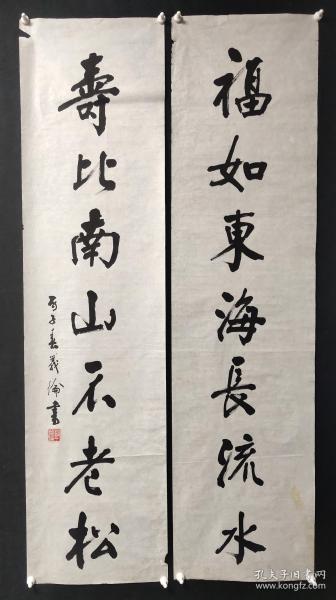 福如東海長流水
壽比南山不老松
丙子春義倫書
孔夫子旧书网
www.kongfz.com